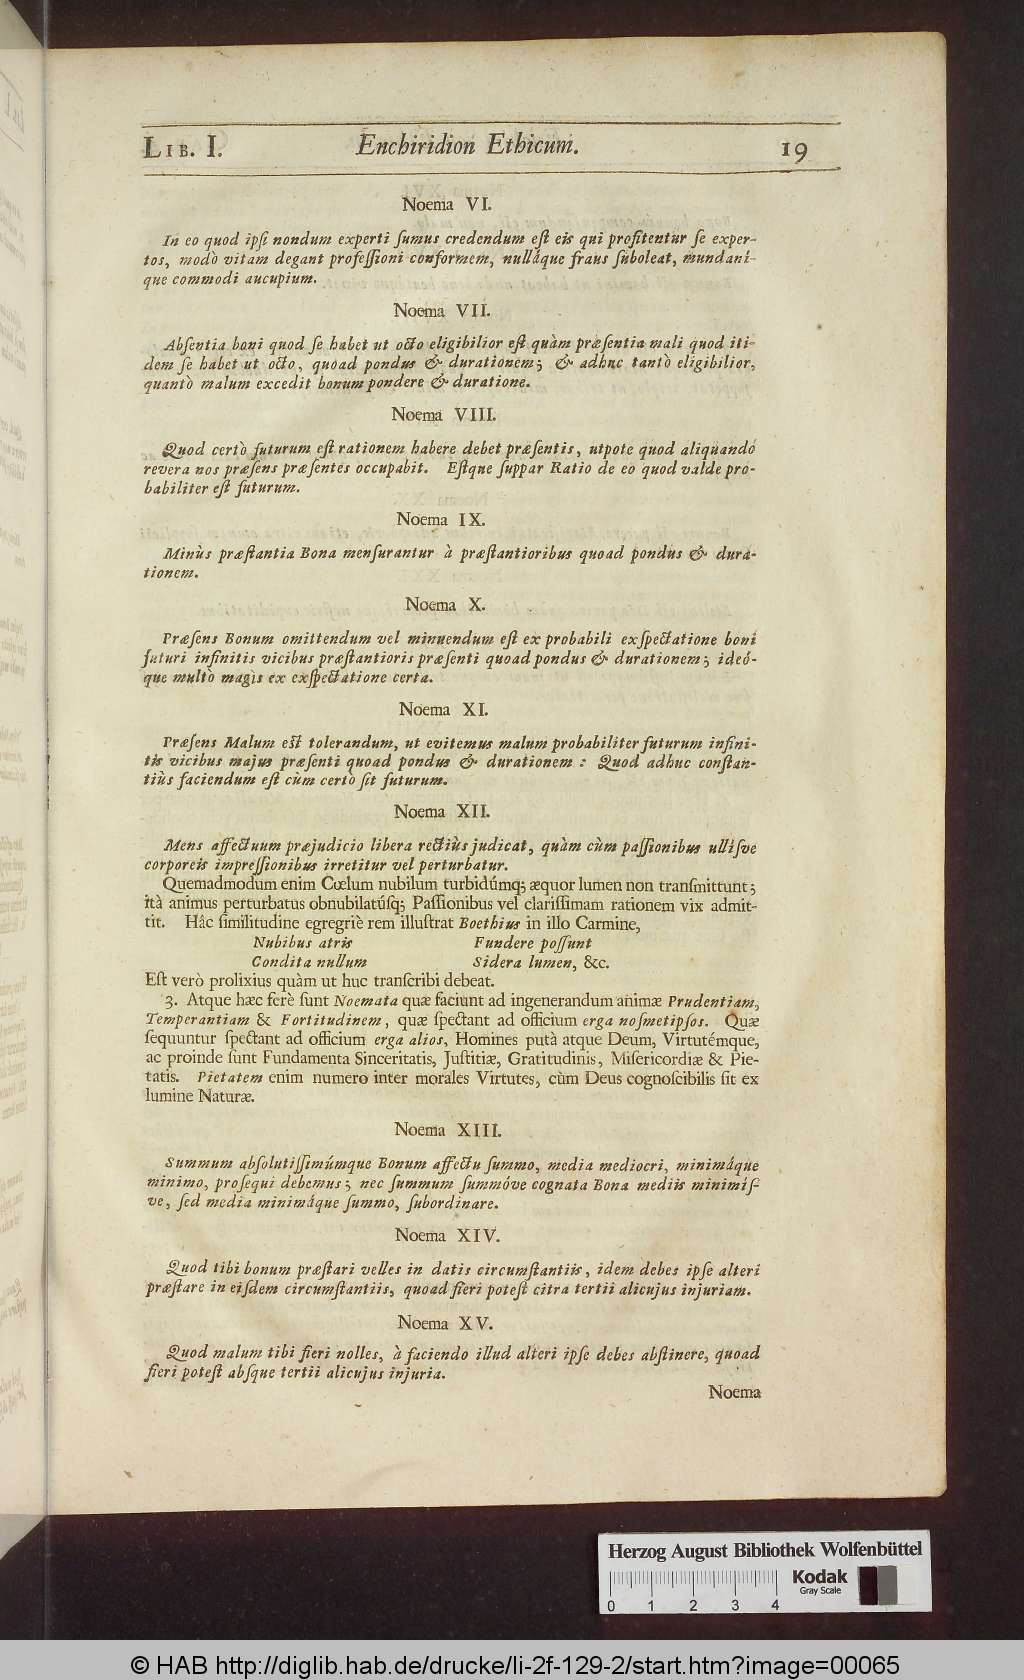 LIB. I. Enchiridion Ethicum. 19
Noema VI.
In eo quod ipſi nondum experti ſumus credendum eſt eis qui profitentur ſe exper-
tos, modò vitam degant profeſſioni conformem, nulláque fraus ſuboleat, mundaní-
que commodi aucupium.
Noema VII.
Abſentia boni quod ſe habet ut octo eligibilior eſt quàm præſentia mali quod iti-
dem ſe habet ut octo, quoad pondus & durationem; & adhuc tantò eligibilior,
quantò malum excedit bonum pondere & duratione.
Noema VIII.
Quod certò futurum eſt rationem habere debet præſentis, utpote quod aliquando
revera nos præſens præſentes occupabit. Eſtque ſuppar Ratio de eo quod valde pro-
babiliter eſt futurum.
Noema IX.
Minùs præſtantia Bona menſurantur à præſtantioribus quoad pondus & dura-
tionem.
Noema X.
Præſens Bonum omittendum vel minuendum eſt ex probabili exſpectatione boni
futuri infinitis vicibus præſtantioris præſenti quoad pondus & durationem; ideó-
que multò magis ex exſpectatione certa.
Noema XI.
Præſens Malum eſt tolerandum, ut evitemus malum probabiliter futurum infini-
tis vicibus majus præſenti quoad pondus & durationem: Quod adhuc conſtan-
tiùs faciendum eſt cùm certò ſit futurum.
Noema XII.
Mens affectuum præjudicio libera rectiùs judicat, quàm cùm paſſionibus ulliſve
corporeis impreſſionibus irretitur vel perturbatur.
Quemadmodum enim Cœlum nubilum turbidúmq; æquor lumen non tranſmittunt;
ità animus perturbatus obnubilatúſq; Paſſionibus vel clariſſimam rationem vix admit-
tit. Hâc ſimilitudine egregriè rem illuſtrat Boethius in illo Carmine,
Nubibus atris Fundere poſſunt
Condita nullum Sidera lumen, &c.
Eſt verò prolixius quàm ut huc tranſcribi debeat.
3. Atque hæc ferè ſunt Noemata quæ faciunt ad ingenerandum animæ Prudentiam,
Temperantiam & Fortitudinem, quæ ſpectant ad officium erga noſmetipſos. Quæ
ſequuntur ſpectant ad officium erga alios, Homines putà atque Deum, Virtutémque,
ac proinde ſunt Fundamenta Sinceritatis, Juſtitiæ, Gratitudinis, Miſericordiæ & Pie-
tatis. Pietatem enim numero inter morales Virtutes, cùm Deus cognoſcibilis ſit ex
lumine Naturæ.
Noema XIII.
Summum abſolutiſſimúmque Bonum affectu ſummo, media mediocri, minimáque
minimo, proſequi debemus; nec ſummum ſummóve cognata Bona mediis minimíſ-
ve, ſed media minimáque ſummo, ſubordinare.
Noema XIV.
Quod tibi bonum præſtari velles in datis circumſtantiis, idem debes ipſe alteri
præſtare in eiſdem circumſtantiis, quoad fieri poteſt citra tertii alicujus injuriam.
Noema XV.
Quod malum tibi fieri nolles, à faciendo illud alteri ipſe debes abſtinere, quoad
fieri poteſt abſque tertii alicujus injuria.
Noema
Herzog August Bibliothek Wolfenbüttel
Kodak
Gray Scale
0 1 2 3 4
© HAB http://diglib.hab.de/drucke/li-2f-129-2/start.htm?image=00065